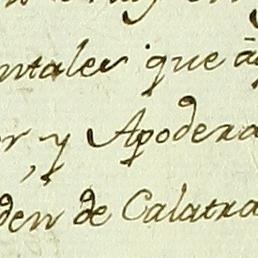 ntales que á
r, y Apodera
den de Calatra